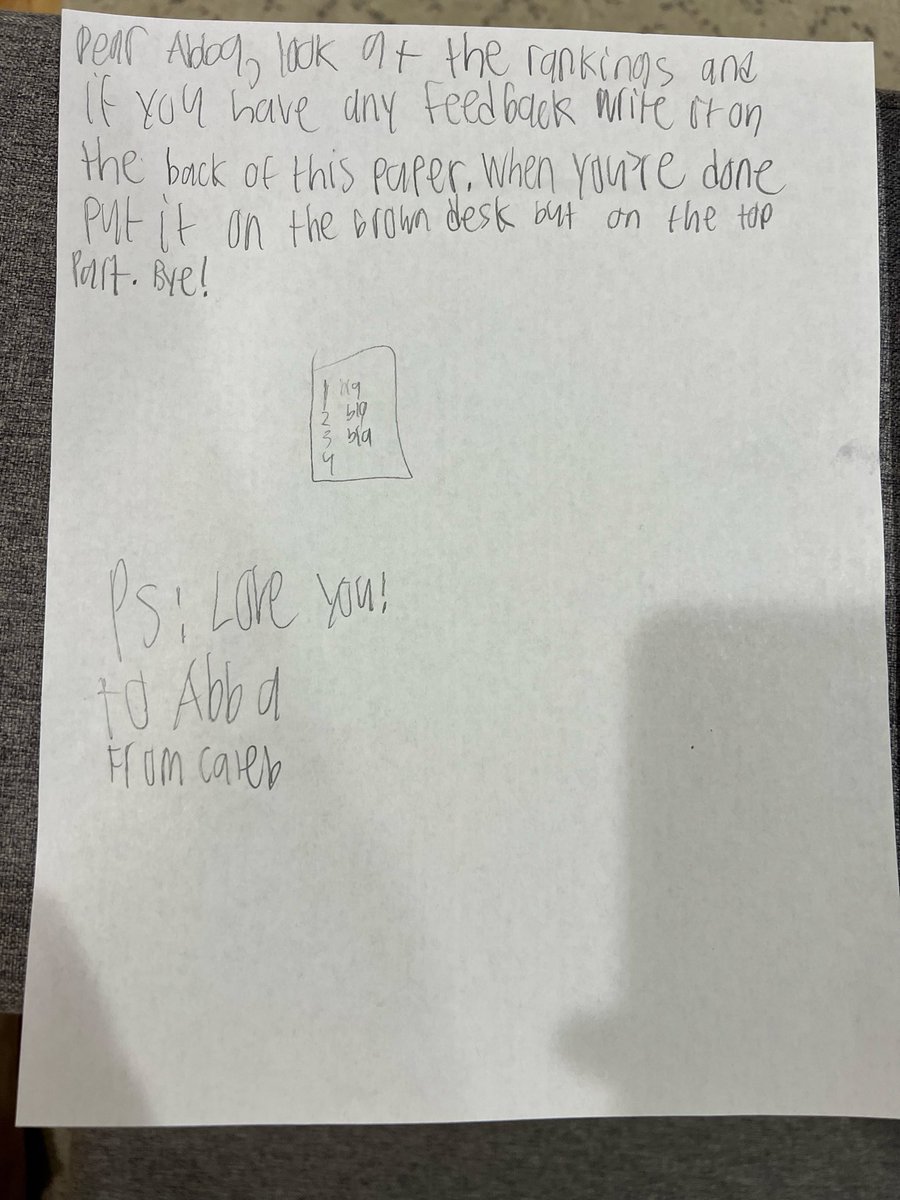 Dear Abba, look at the rankings and
if you have any feedback write it on
the back of this paper. When you're done
put it on the brown desk but on the top
part. Bye!
1
2 bla
3 bla
4
Ps: Love you!
to Abba
From Caleb